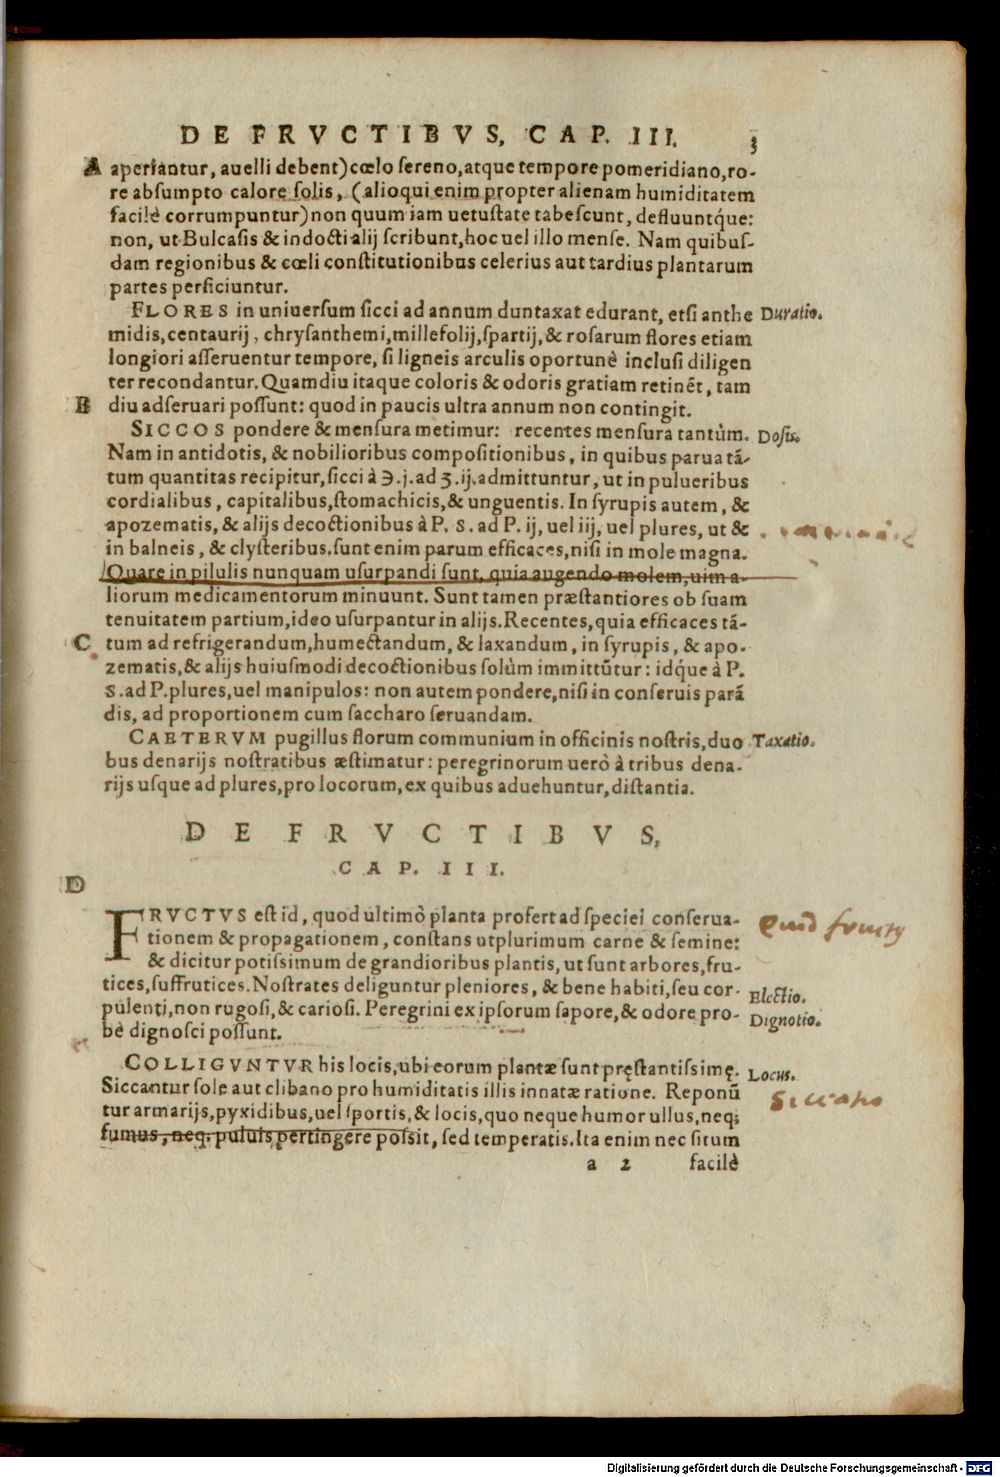 DE FRVCTIBVS, CAP. III. 3
A aperiantur, auelli debent) cœlo sereno, atque tempore pomeridiano, ro-
re absumpto calore solis, (alioqui enim propter alienam humiditatem
facilè corrumpuntur) non quum iam uetustate tabescunt, defluuntq́ue:
non, ut Bulcasis & indocti alij scribunt, hoc uel illo mense. Nam quibus-
dam regionibus & cœli constitutionibus celerius aut tardius plantarum
partes perficiuntur.
FLORES in uniuersum sicci ad annum duntaxat edurant, etsi anthe Duratio.
midis, centaurij, chrysanthemi, millefolij, spartij, & rosarum flores etiam
longiori asseruentur tempore, si ligneis arculis oportunè inclusi diligen
ter recondantur. Quamdiu itaque coloris & odoris gratiam retinẽt, tam
B diu adseruari possunt: quod in paucis ultra annum non contingit.
SICCOS pondere & mensura metimur: recentes mensura tantùm. Dosis.
Nam in antidotis, & nobilioribus compositionibus, in quibus parua tã-
tum quantitas recipitur, sicci à ℈.j. ad ʒ.ij. admittuntur, ut in pulueribus
cordialibus, capitalibus, stomachicis, & unguentis. In syrupis autem, &
apozematis, & alijs decoctionibus à P. s. ad P. ij, uel iij, uel plures, ut &
in balneis, & clysteribus. sunt enim parum efficaces, nisi in mole magna.
Quare in pilulis nunquam usurpandi sunt, quia augendo molem, uim a-
liorum medicamentorum minuunt. Sunt tamen præstantiores ob suam
tenuitatem partium, ideo usurpantur in alijs. Recentes, quia efficaces tã-
C tum ad refrigerandum, humectandum, & laxandum, in syrupis, & apo-
zematis, & alijs huiusmodi decoctionibus solùm immittũtur: idq́ue à P.
s. ad P. plures, uel manipulos: non autem pondere, nisi in conseruis parã
dis, ad proportionem cum saccharo seruandam.
CAETERVM pugillus florum communium in officinis nostris, duo Taxatio.
bus denarijs nostratibus æstimatur: peregrinorum uerò à tribus dena-
rijs usque ad plures, pro locorum, ex quibus aduehuntur, distantia.
DE FRVCTIBVS,
CAP. III.
D
FRVCTVS est id, quod ultimò planta profert ad speciei conserua-
tionem & propagationem, constans utplurimum carne & semine:
& dicitur potissimum de grandioribus plantis, ut sunt arbores, fru-
tices, suffrutices. Nostrates deliguntur pleniores, & bene habiti, seu cor- Electio.
pulenti, non rugosi, & cariosi. Peregrini ex ipsorum sapore, & odore pro- Dignotio.
bè dignosci possunt.
COLLIGVNTVR his locis, ubi eorum plantæ sunt pręstantissimę. Locus.
Siccantur sole aut clibano pro humiditatis illis innatæ ratione. Reponũ Siccatio
tur armarijs, pyxidibus, uel sportis, & locis, quo neque humor ullus, neq;
fumus, neq. puluis pertingere possit, sed temperatis. Ita enim nec situm
a 2 facilè
Digitalisierung gefördert durch die Deutsche Forschungsgemeinschaft - DFG